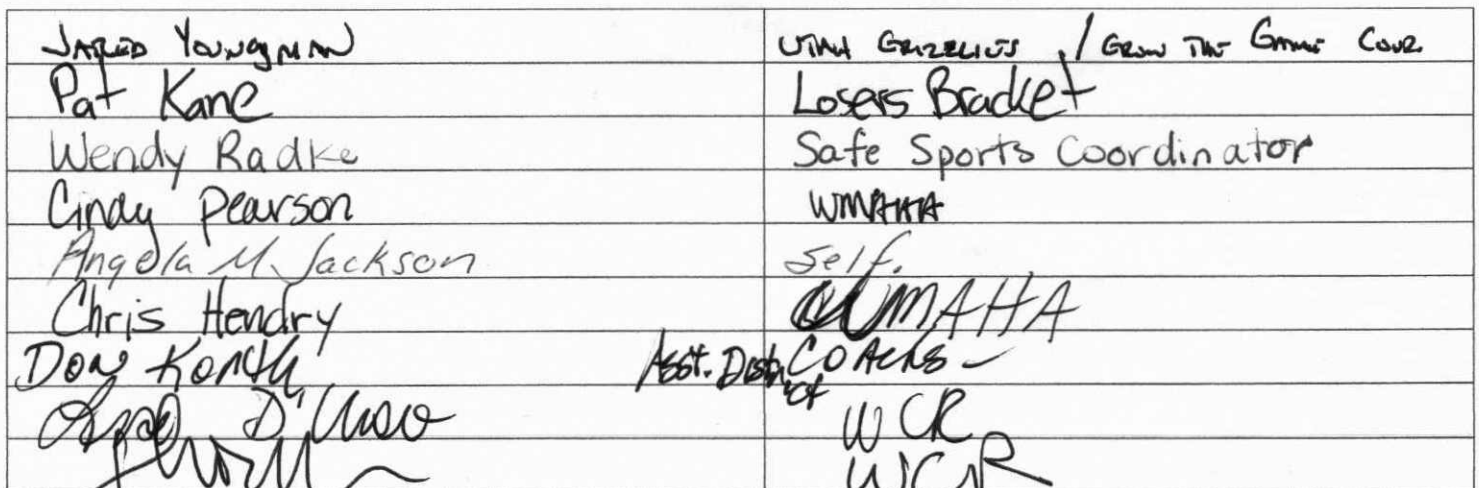 JARED YOUNGMAN UTAH GRIZZLIES / GROW THE GAME
Pat Kane Losers Bracket
Wendy Radke Safe Sports Coordinator
Cindy Pearson WMAHA
Angela M. Jackson Self.
Chris Hendry WMAHA
Don Asst. District Coach
WCR
WCR